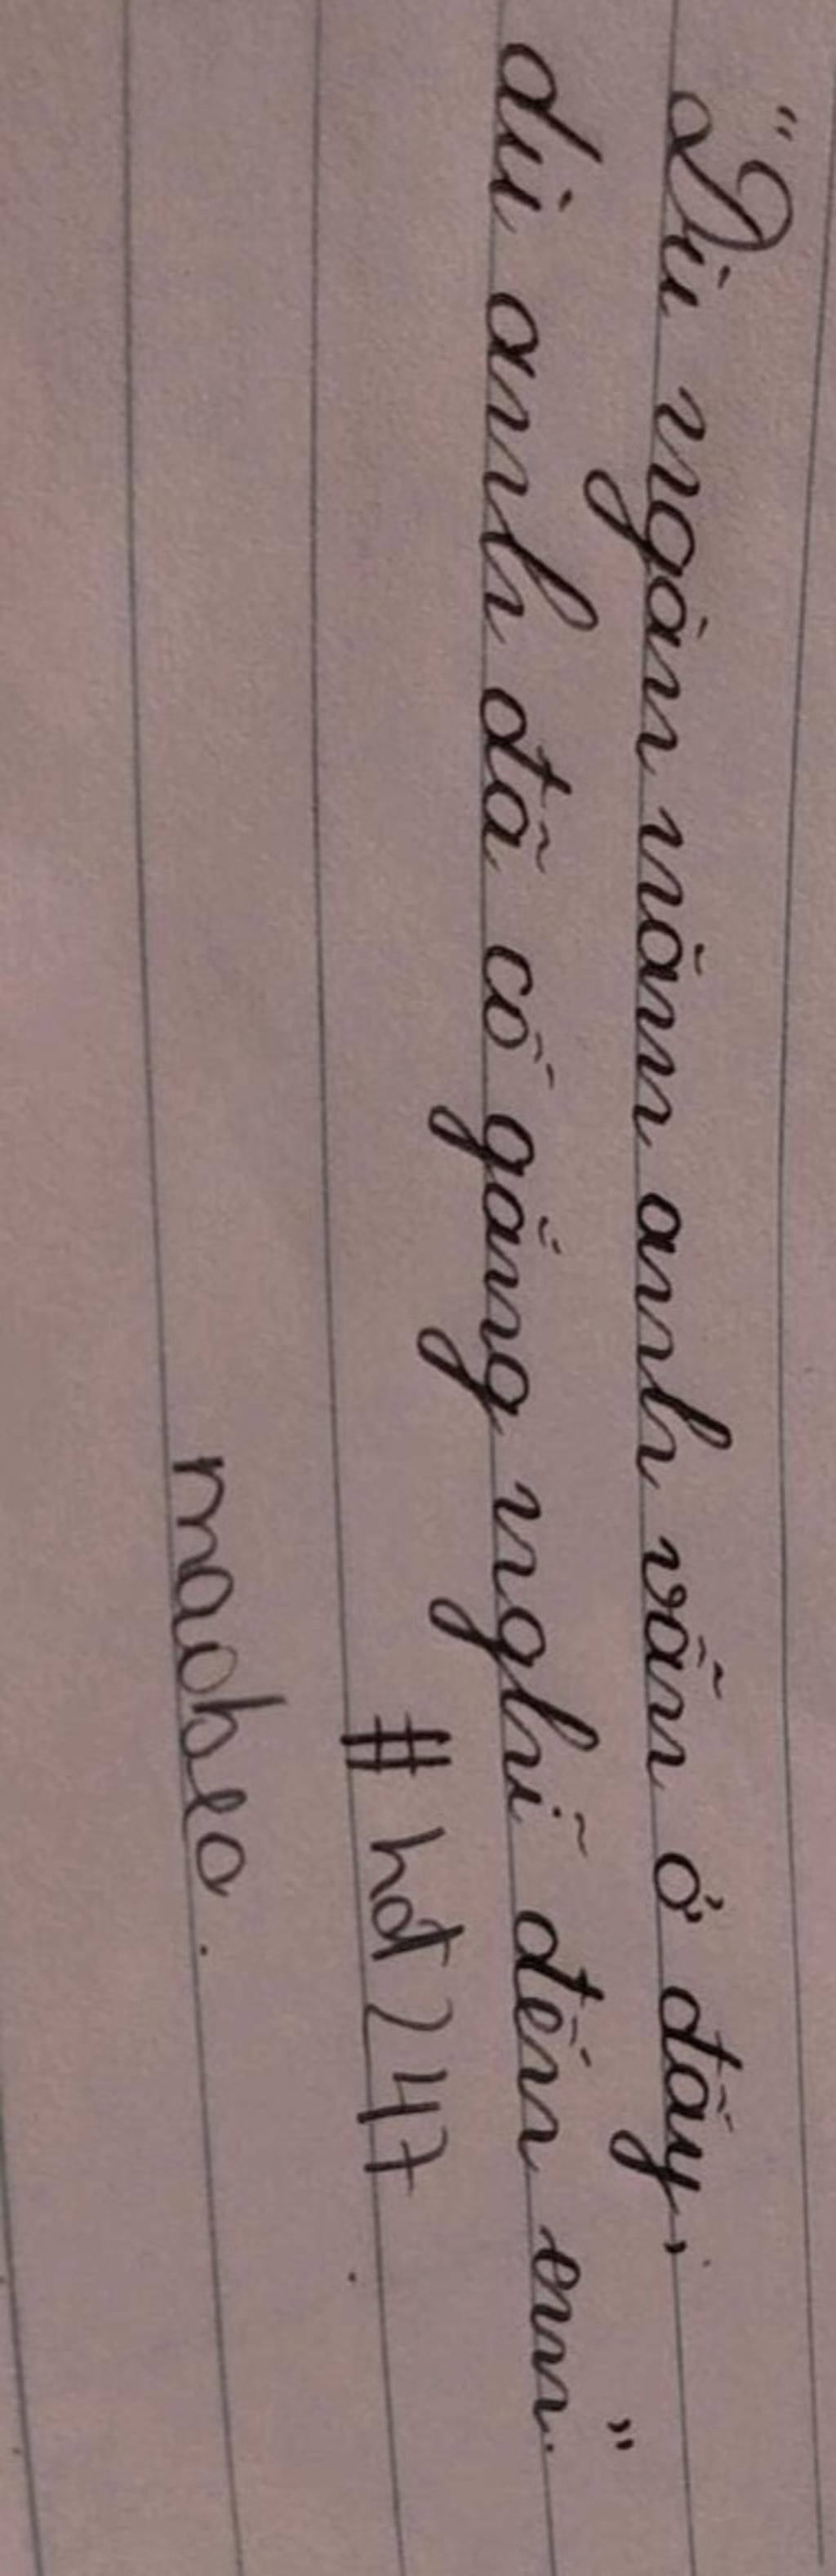 "Dù ngàn năm anh vẫn ở đây,
dù anh đã cố gắng nghĩ đến em."
#hđ247
maoheo.